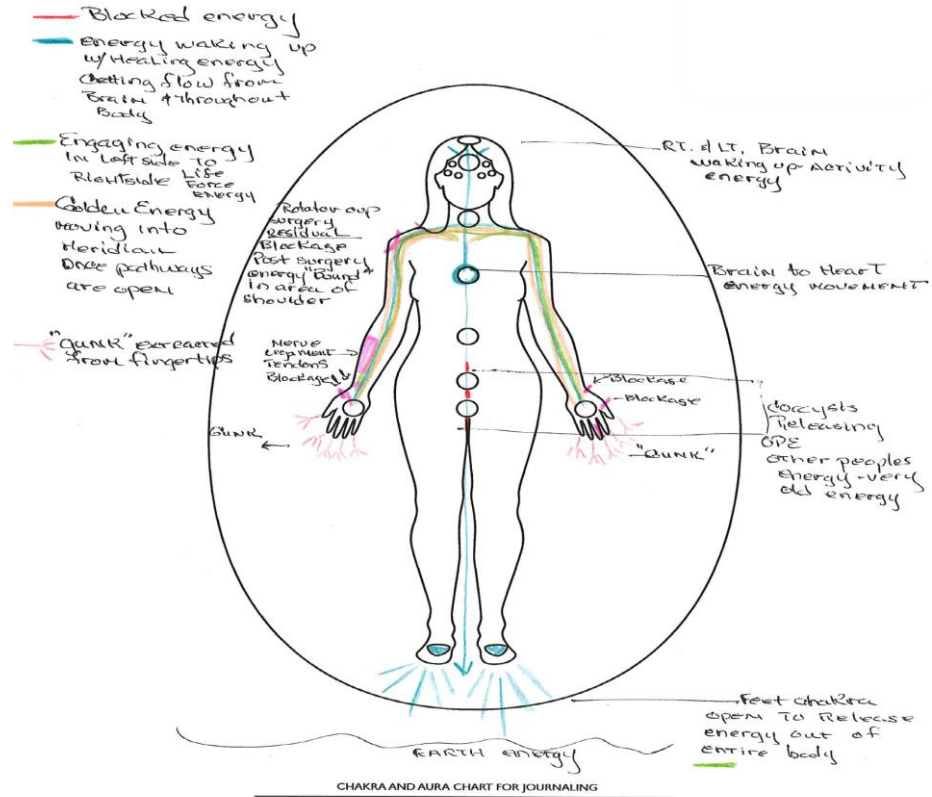 Blocked energy
Energy waking up
w/Healing energy
Getting flow from
Brain & throughout
Body
Engaging energy
in Left side to
Rightside Life
Force
Energy
Golden Energy
moving into
Meridian
Once pathways
are open
"GUNK" extracted
from fingertips
Rotator cup
surgery
Residual
Blockage
Post surgery
energy "Bound"
in area of
shoulder
Nerve
Tendons
Blockage
GUNK
RT. & LT. Brain
waking up activity
energy
Brain to Heart
energy movement
Blockage
Blockage
"GUNK"
Releasing
OPE
Other peoples
energy-very
old energy
Feet chakra
open to Release
energy out of
entire body
EARTH energy
CHAKRA AND AURA CHART FOR JOURNALING